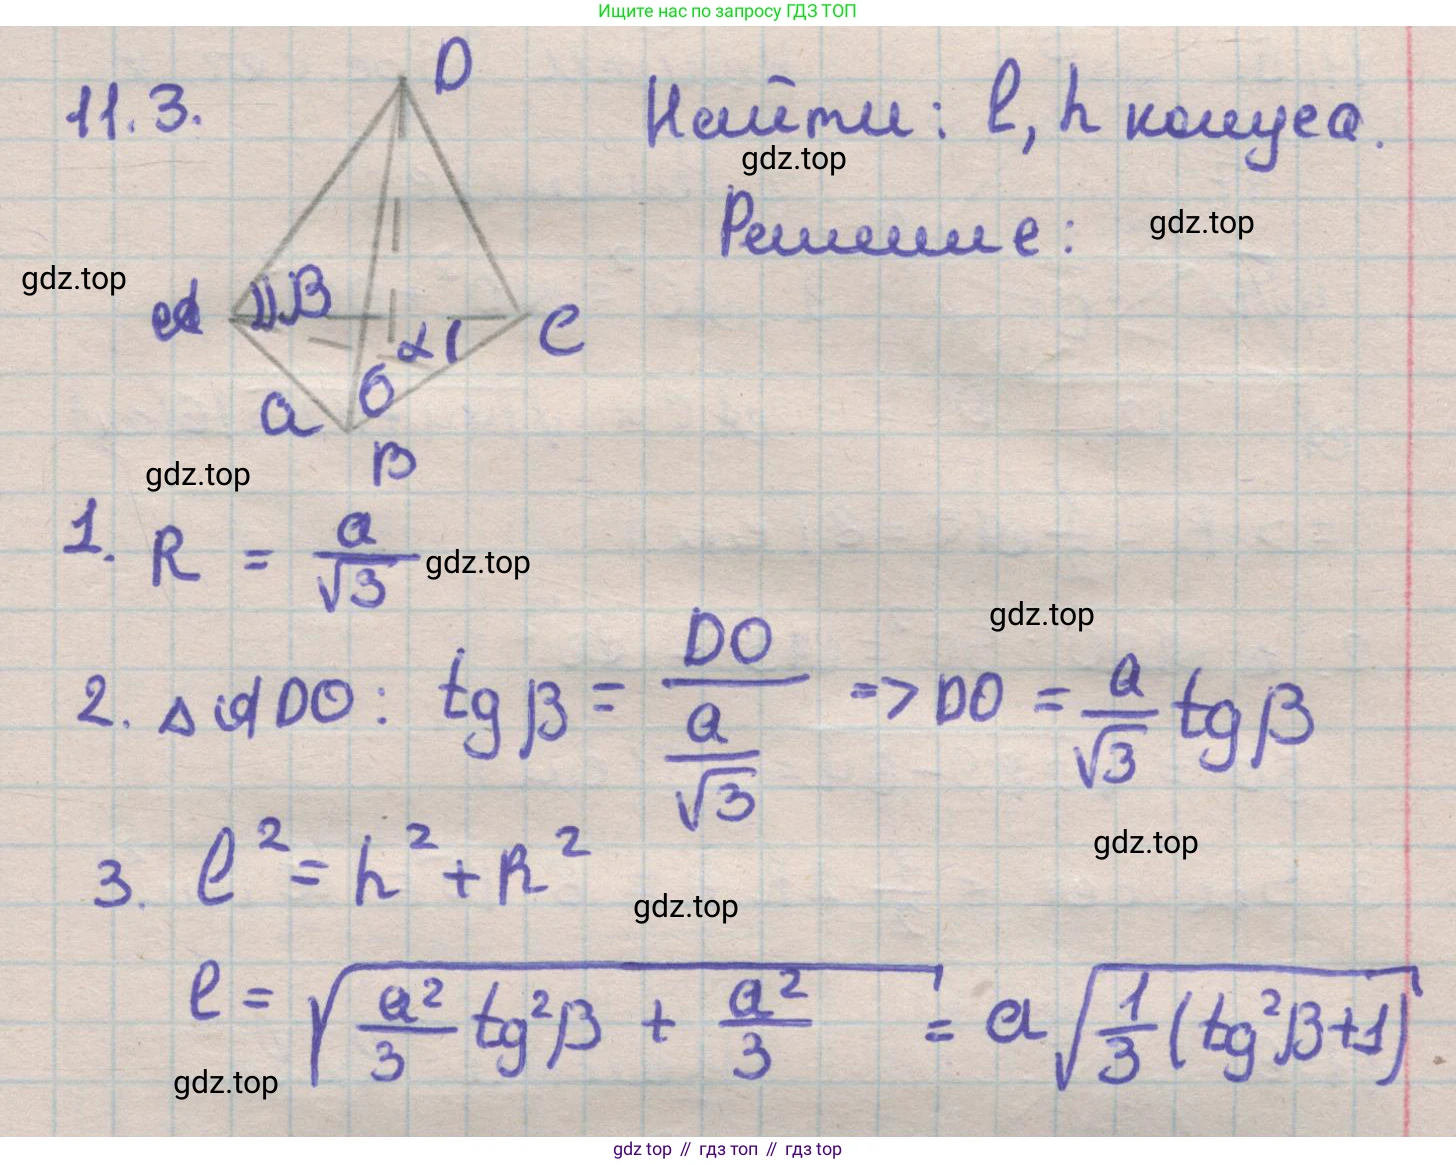 Ищите нас по запросу ГДЗ ТОП
11.3.
D
Найти: l, h конуса.
gdz.top
Решение:
gdz.top
gdz.top
β
C
α
O
a
B
gdz.top
1. R = a/√3
gdz.top
gdz.top
2. Δ ADO: tgβ = DO/(a/√3) => DO = a/√3 tgβ
gdz.top
3. l² = h² + R²
gdz.top
l = √(a²/3 tg²β + a²/3) = a√(1/3 (tg²β+1))
gdz.top
gdz top // гдз топ // гдз.top